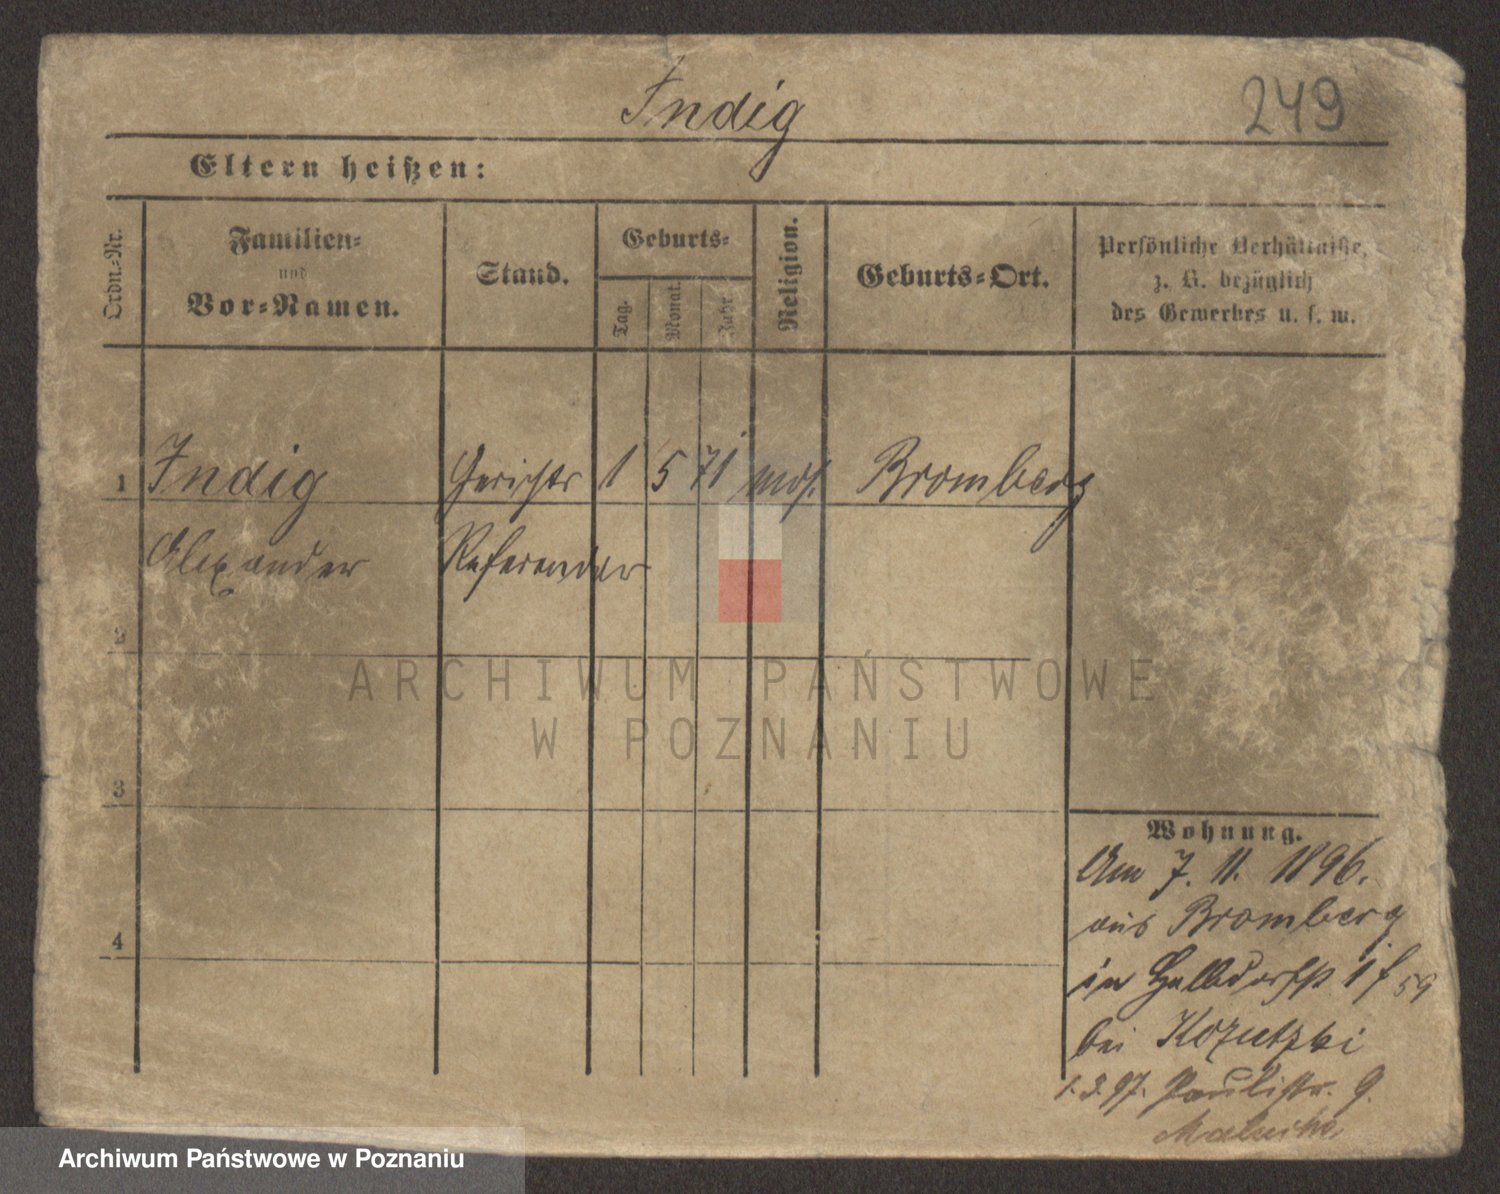 Indig
249
Eltern heißen:
Ordn.-Nr.
Familien-
und
Vor-Namen.
Stand.
Geburts-
Tag.
Monat.
Jahr.
Religion.
Geburts-Ort.
Persönliche Verhältnisse,
z. B. bezüglich
des Gewerbes u. s. w.
1 Indig Gerichts 1 5 71 mos. Bromberg
Alexander Referendar
2
3
4
Wohnung.
Am 7. 11. 1896.
aus Bromberg
in Halbdorfstr. 1
bei
1. 3. 97. Paulistr. 9.
ARCHIWUM PAŃSTWOWE
W POZNANIU
Archiwum Państwowe w Poznaniu